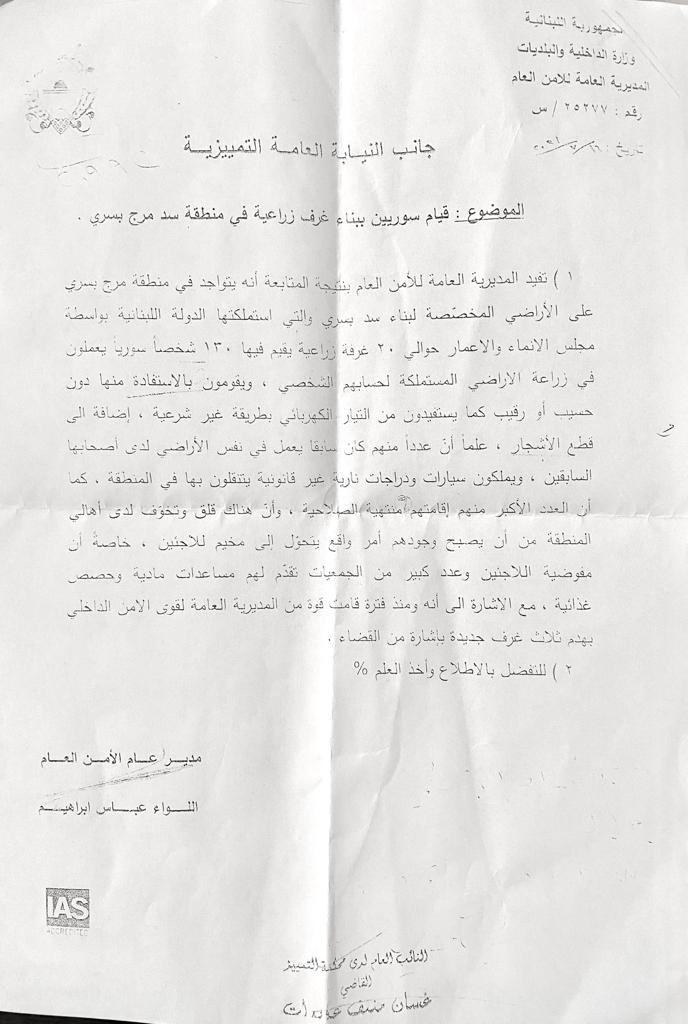 الجمهورية اللبنانية
وزارة الداخلية والبلديات
المديرية العامة للامن العام
رقم : ٢٥٢٧٧ / س
تاريخ :
جانب النيابة العامة التمييزية
الموضوع : قيام سوريين ببناء غرف زراعية في منطقة سد مرج بسري .
١ ) تفيد المديرية العامة للأمن العام بنتيجة المتابعة أنه يتواجد في منطقة مرج بسري
على الأراضي المخصّصة لبناء سد بسري والتي استملكتها الدولة اللبنانية بواسطة
مجلس الانماء والاعمار حوالي ٢٠ غرفة زراعية يقيم فيها ١٣٠ شخصاً سورياً يعملون
في زراعة الاراضي المستملكة لحسابهم الشخصي ، ويقومون بالاستفادة منها دون
حسيب أو رقيب كما يستفيدون من التيار الكهربائي بطريقة غير شرعية ، إضافة الى
قطع الأشجار ، علماً أنّ عدداً منهم كان سابقا يعمل في نفس الأراضي لدى أصحابها
السابقين ، ويملكون سيارات ودراجات نارية غير قانونية يتنقلون بها في المنطقة ، كما
أن العدد الأكبر منهم إقامتهم منتهية الصلاحية ، وأنّ هناك قلق وتخوّف لدى أهالي
المنطقة من أن يصبح وجودهم أمر واقع يتحوّل إلى مخيم للاجئين ، خاصةً أن
مفوضية اللاجئين وعدد كبير من الجمعيات تقدّم لهم مساعدات مادية وحصص
غذائية ، مع الاشارة الى أنه ومنذ فترة قامت قوة من المديرية العامة لقوى الامن الداخلي
بهدم ثلاث غرف جديدة بإشارة من القضاء .
٢ ) للتفضل بالاطلاع وأخذ العلم %
مدير عام الأمن العام
اللواء عباس ابراهيم
IAS
ACCREDITED
النائب العام لدى محكمة التمييز
القاضي
غسان منيف عويدات